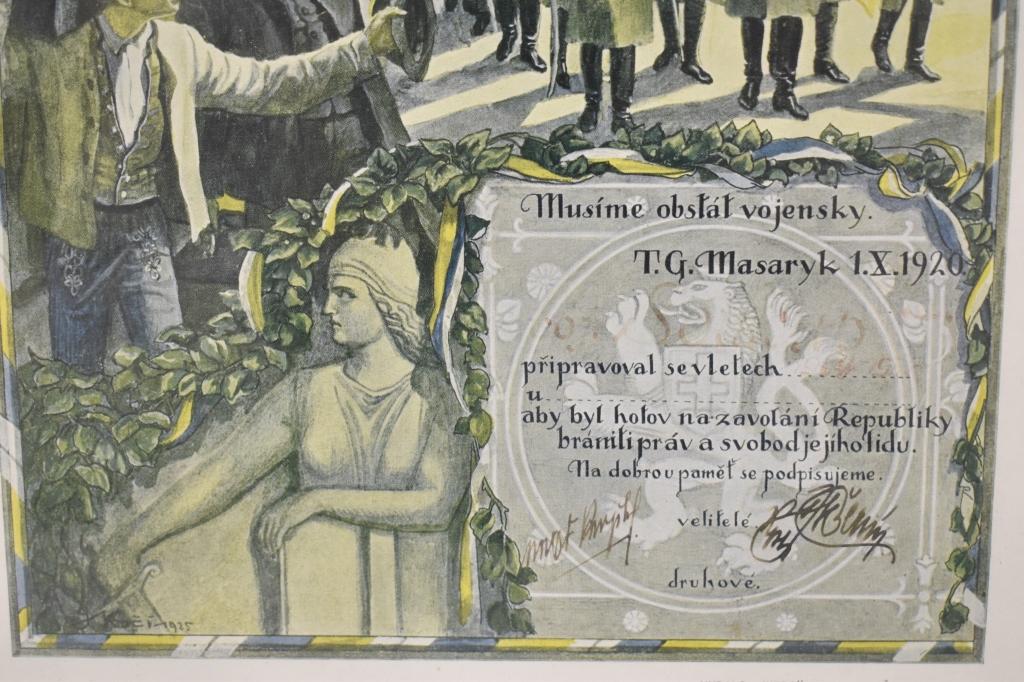 Musíme obstát vojensky.
T. G. Masaryk 1. X. 1920.
připravoval se v letech
u
aby byl hotov na zavolání Republiky
brániti práv a svobod jejího lidu.
Na dobrou paměť se podpisujeme.
velitelé
druhové.
1925